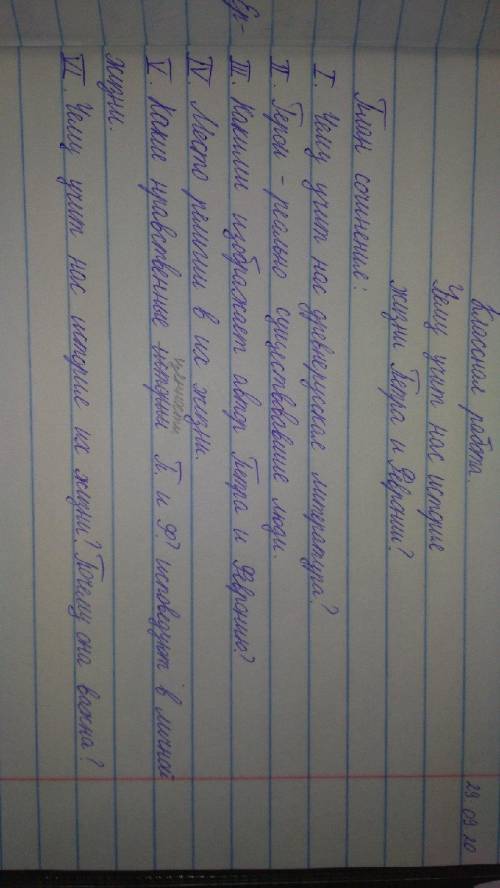 29.09.20
Классная работа.
Чему учит нас история
жизни Петра и Февронии?
План сочинения:
I. Чему учит нас древнерусская литература?
II. Герои - реально существовавшие люди.
III. Какими изображает автор Петра и Февронию?
IV. Место религии в их жизни.
ценности
V. Какие нравственные истории П. и Ф. исповедуют в личной
жизни.
VI. Чему учит нас история их жизни? Почему она важна?
Ер-